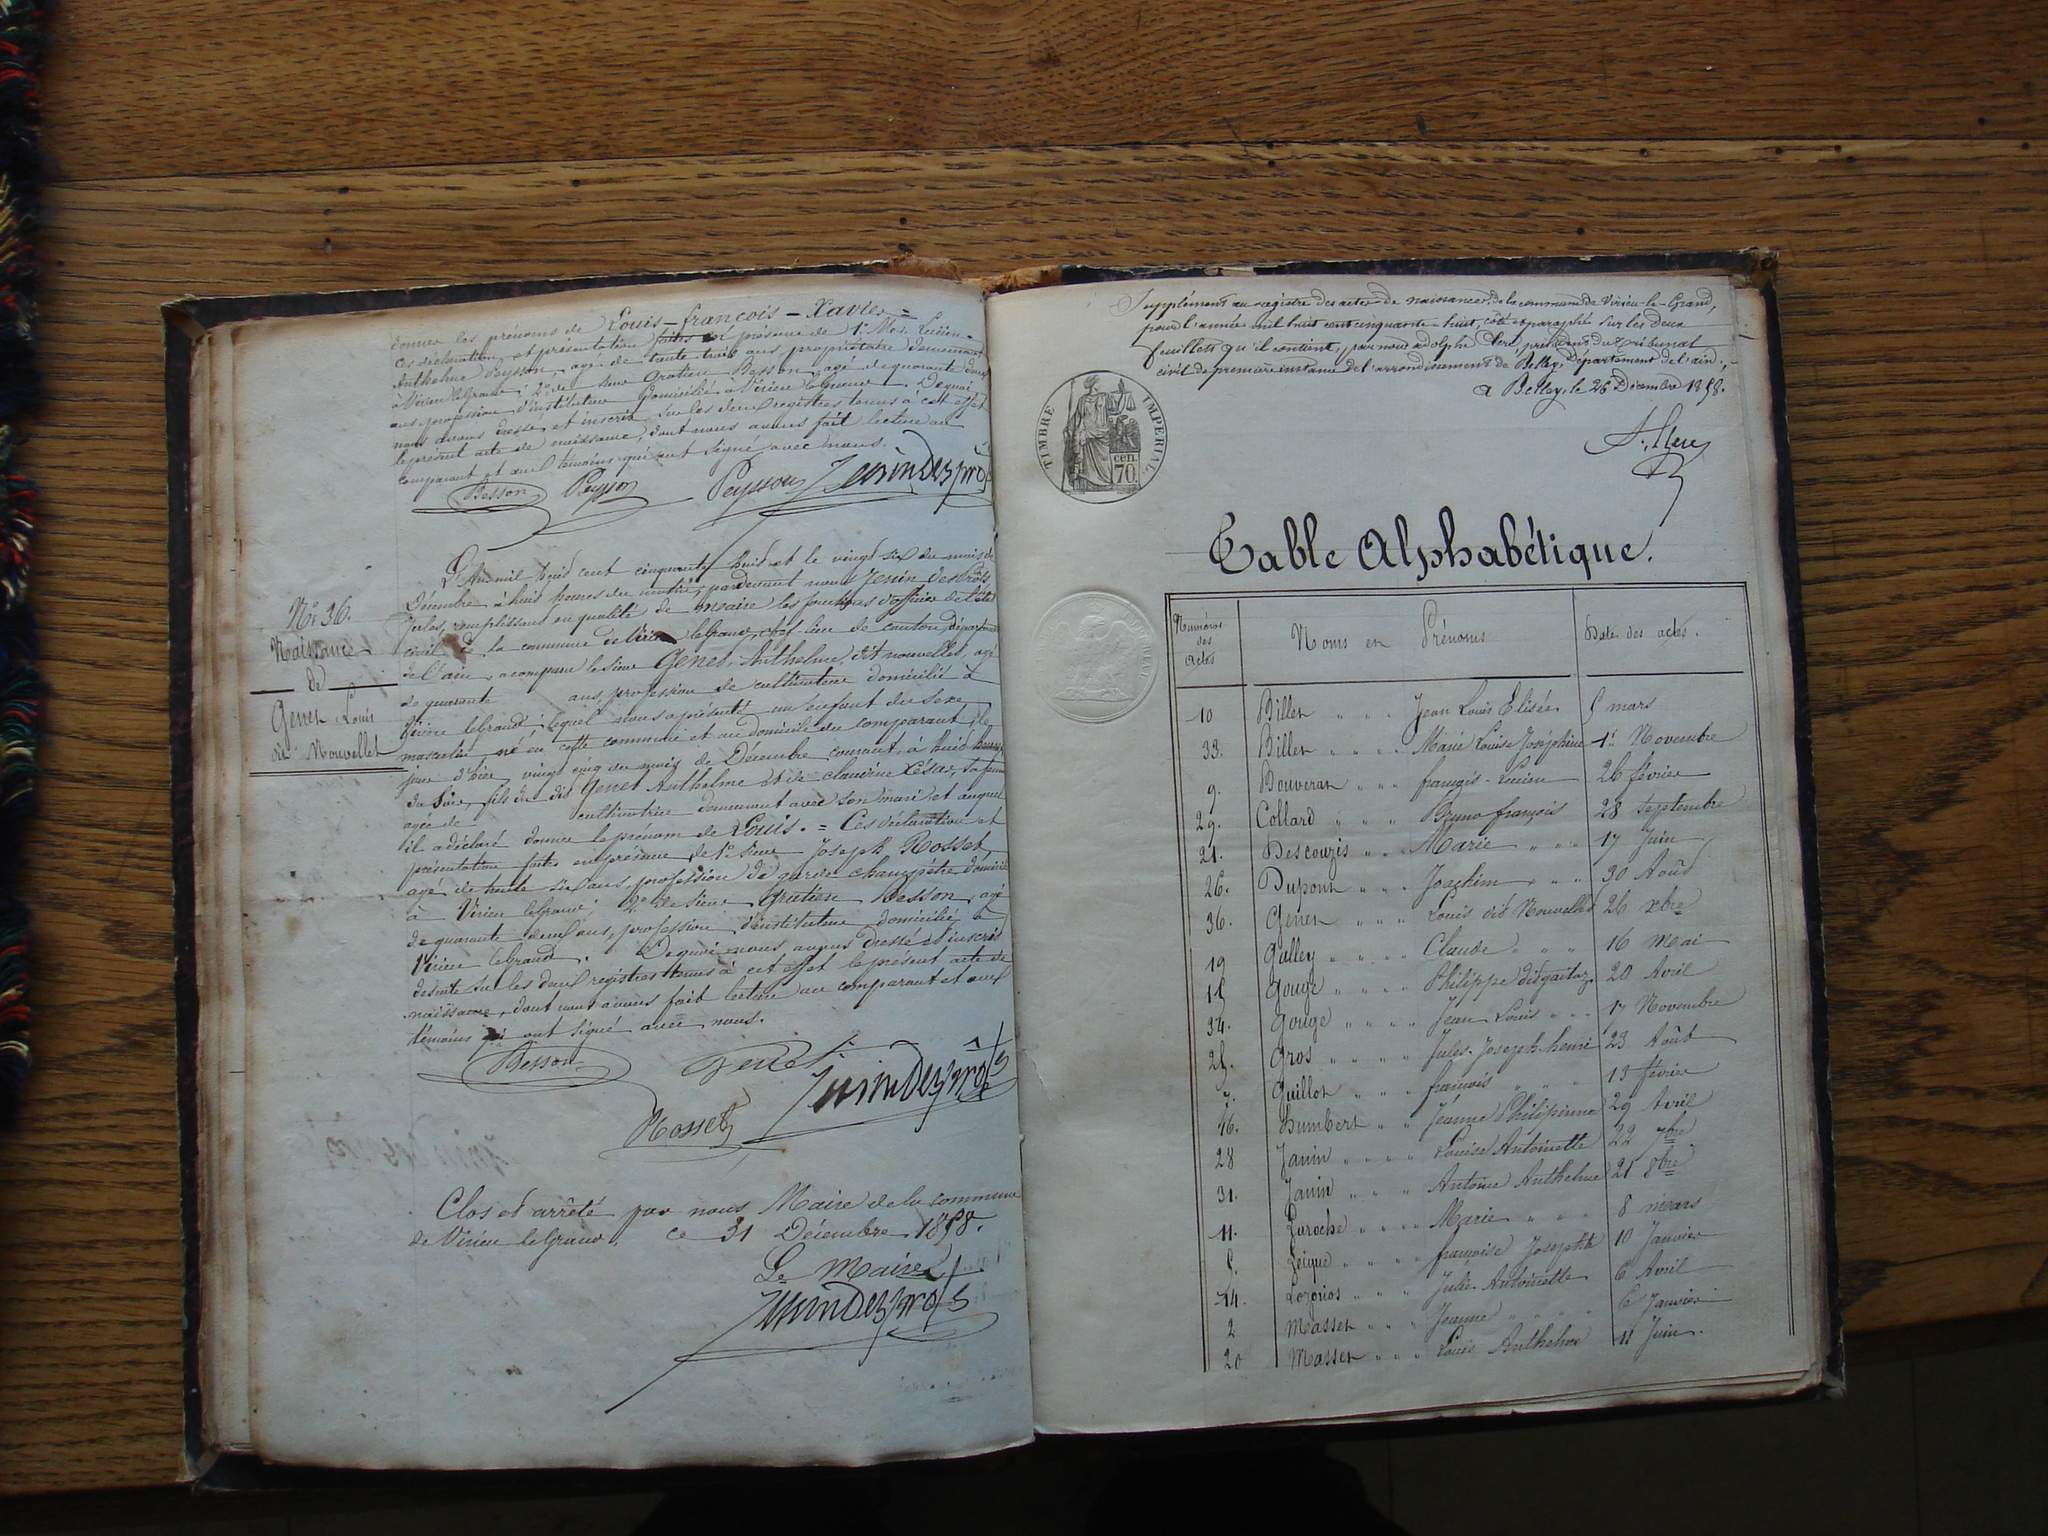 donner les prénoms de Louis-françois-Xavier =
Ces déclaration et présentation faites en présence de 1° Mr. Lucien-
Anthelme Peysson, agé de trente trois ans propriétaire demeurant
à Virieu le Grand; 2° de sieur Gratien Besson, agé de quarante deux
ans, profession d'instituteur domicilié à Virieu le Grand. De quoi
nous avons dressé et inscrit sur les deux registres tenus à cet effet
le présent acte de naissance, dont nous avons fait lecture au
comparant et aux témoins qui ont signé avec nous.
Besson Peysson Peysson Jenin Desprôts
N° 36.
Naissance
de
Genet Louis
dit Nouvellet
L'An mil huit cent cinquante huit et le vingt six du mois de
Décembre à huit heures du matin, pardevant nous Jenin desprôts,
Jules, remplissant en qualité de maire les fonctions d'officier de l'état
civil de la commune de Virieu le Grand, chef-lieu de canton, département
de l'ain, a comparu le sieur Genet, Anthelme, dit nouvellet, agé
de quarante ans, profession de cultivateur domicilié à
Virieu le Grand; lequel nous a présenté un enfant du sexe
masculin né en cette commune et au domicile du comparant, le
jour d'hier, vingt cinq du mois de Décembre courant, à huit heures
du soir, fils du dit Genet Anthelme et de Claudine César, sa femme
agée de cultivatrice demeurant avec son mari et auquel
il a déclaré donner le prénom de Louis. = Ces déclaration et
présentation faites en présence de 1° sieur Joseph Rosset,
agé de trente six ans, profession de garde champêtre domicilié
à Virieu le Grand; 2° de sieur Gratien Besson, agé
de quarante deux ans, profession d'instituteur domicilié à
Virieu le Grand. De quoi nous avons dressé et inscrit
de suite sur les deux registres tenus à cet effet le présent acte de
naissance, dont nous avons fait lecture au comparant et aux
témoins qui ont signé avec nous.
Besson Genet Jenin Desprôts
Rosset
Clos et arrêté par nous Maire de la commune
de Virieu le Grand, ce 31 Décembre 1858.
Le Maire
Jenin Desprôts
Supplément au registre des actes de naissances de la commune de Virieu-le-Grand,
pour l'année mil huit cent cinquante-huit, côté et paraphé sur les deux
feuillets qu'il contient, par nous adolphe Clerc, président du Tribunal
civil de première instance de l'arrondissement de Belley, Département de l'ain;
a Belley, le 26 Décembre 1858.
A. Clerc
TIMBRE IMPERIAL
70 cen.
Table Alphabétique.
Numéros des actes Noms et Prénoms Date des actes.
10 Billet " " " Jean Louis Elisée 5 mars
33. Billet " " " Marie Louise Joséphine 1er Novembre
9. Bouveran " " " françois-Lucien 26 février
29. Collard " " " Bruno françois 28 Septembre
21. Descouzis " " " Marie " " " 17 Juin
26. Dupont " " " Joachim " " " 30 Août
36. Genet " " " Louis dit Nouvellet 26 xbre
19 Golley " " " Claude " " " 16 mai
15 Gouge " " " " Philippe dit gaitaz 20 Avril
34. Gouge " " " " Jean Louis " " " 17 Novembre
25. Gros " " " " Jules-Joseph-henri 23 Août
7. Guillot " " " françois " " " 13 février
16. Humbert " " Jéanne Philippinne 29 Avril
28 Janin " " " " Louise Antoinette 22 7bre
31. Janin " " " Antoine Anthelme 21 8bre
11. Laroche " " " " Marie " " " 8 mars
5. Leigue " " " " françoise Josephte 10 Janvier
14. Lozorios " " " Julie-Antoinette 6 Avril
2 Masset " " " Jeanne " " " 6 Janvier
20 Masset " " " Louis Anthelme 11 Juin.